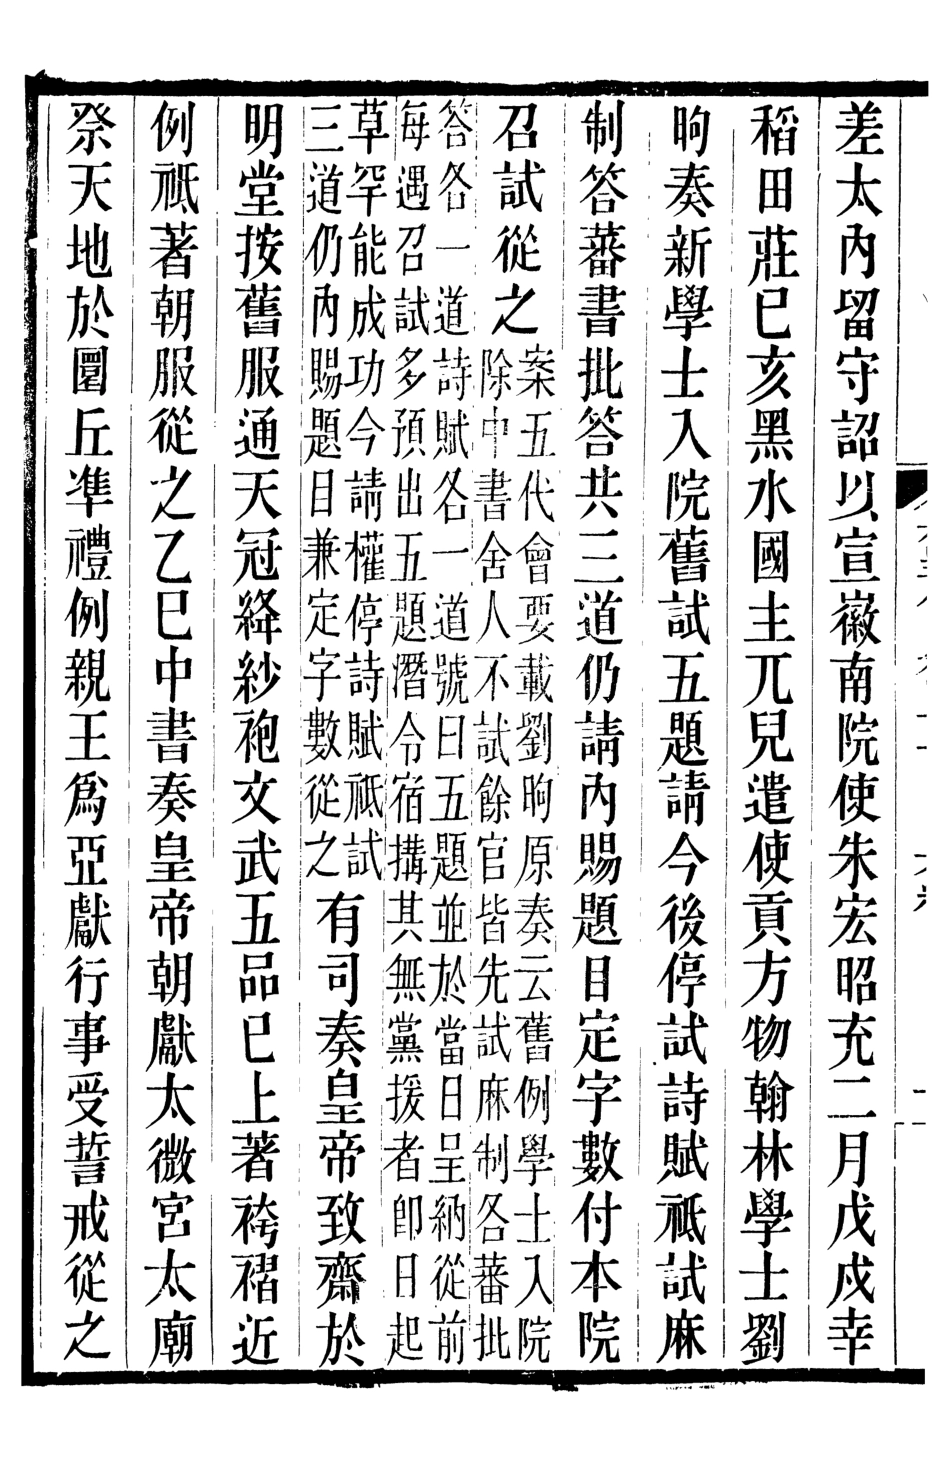 差太內留守詔以宣徽南院使朱宏昭充二月戊戌幸
稻田莊巳亥黑水國主兀兒遣使貢方物翰林學士劉
昫奏新學士入院舊試五題請今後停試詩賦祗試麻
制答蕃書批答共三道仍請內賜題目定字數付本院
召試從之
案五代會要載劉昫原奏云舊例學士入院
除中書舍人不試餘官皆先試麻制各蕃批
答各一道詩賦各一道號曰五題並於當日呈納從前
每遇召試多預出五題潛令宿搆其無黨援者卽日起
草罕能成功今請權停詩賦祗試
三道仍內賜題目兼定字數從之
有司奏皇帝致齋於
明堂按舊服通天冠絳紗袍文武五品巳上著袴褶近
例祗著朝服從之乙巳中書奏皇帝朝獻太微宮太廟
祭天地於圜丘準禮例親王爲亞獻行事受誓戒從之